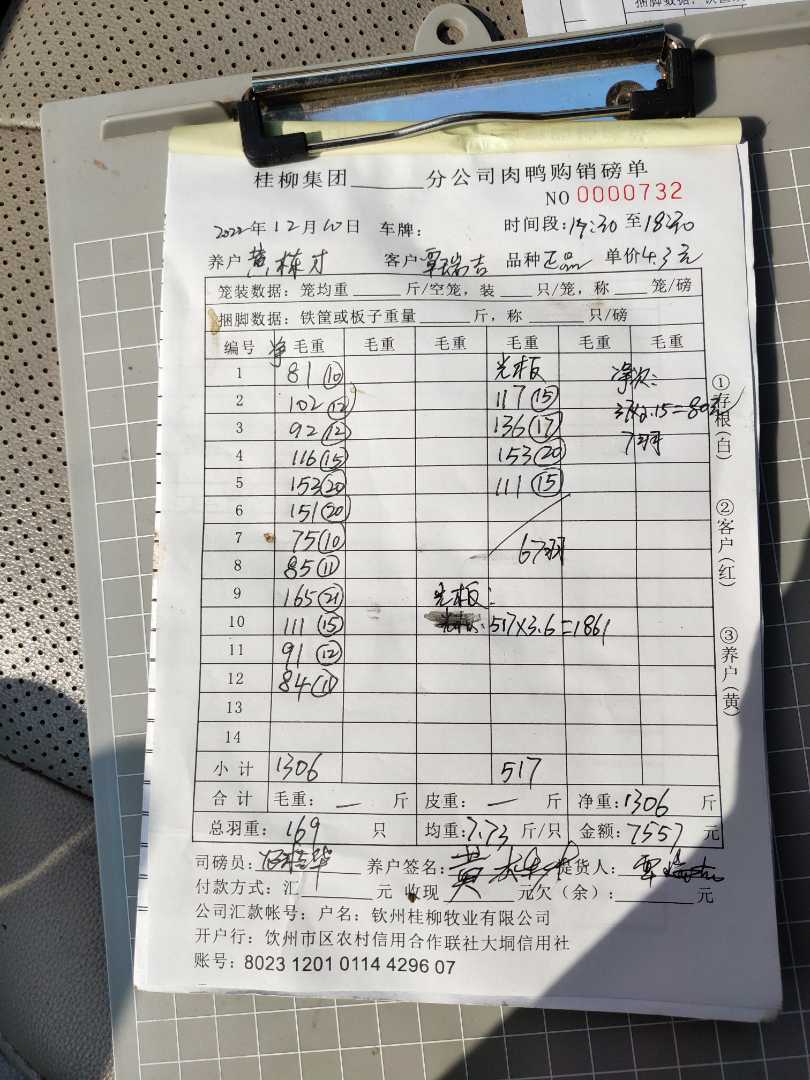 桂柳集团______分公司肉鸭购销磅单
NO 0000732
2022年12月10日 车牌: 时间段:17:30至18:30
养户 黄栋才 客户 覃瑞吉 品种 正品 单价4.3元
笼装数据: 笼均重______斤/空笼, 装____只/笼, 称____笼/磅
捆脚数据: 铁筐或板子重量______斤, 称______只/磅
编号 净毛重 毛重 毛重 毛重 毛重 毛重
1 81⑩ 光板 净次:
2 102⑫ 117⑮ 37X2.15=80元
3 92⑫ 136⑰ 7羽
4 116⑮ 153⑳
5 153⑳ 111⑮
6 151⑳
7 75⑩ 67羽
8 85⑪
9 165㉑ 光板:
10 111⑮ 517X3.6=1861
11 91⑫
12 84⑪
13
14
小计 1306 517
合计 毛重: — 斤 皮重: — 斤 净重:1306 斤
总羽重: 169 只 均重:7.73 斤/只 金额:7557 元
司磅员: 养户签名: 黄 提货人: 覃瑞吉
付款方式: 汇______元 收现______元欠(余):______元
公司汇款帐号: 户名: 钦州桂柳牧业有限公司
开户行: 饮州市区农村信用合作联社大垌信用社
账号: 8023 1201 0114 4296 07
①存根(白)
②客户(红)
③养户(黄)